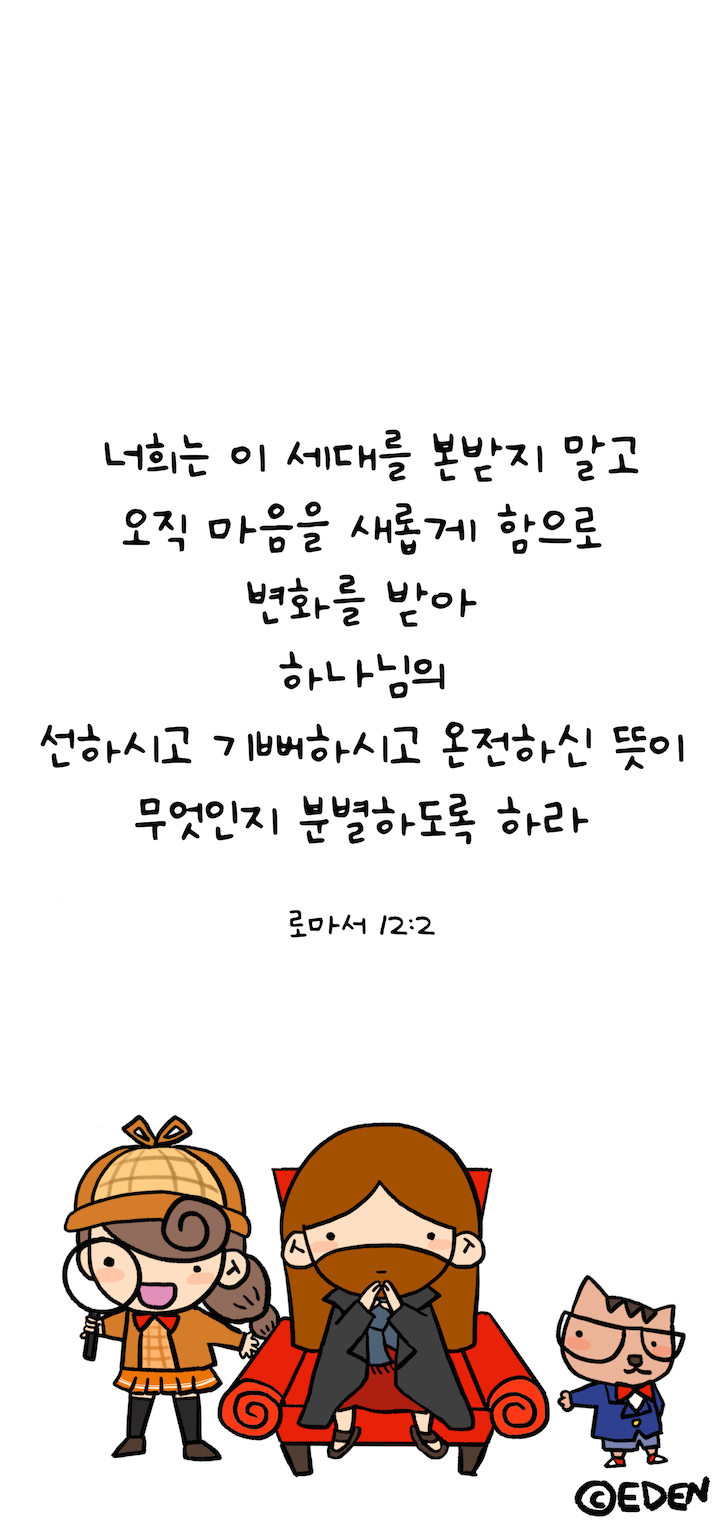 너희는 이 세대를 본받지 말고
오직 마음을 새롭게 함으로
변화를 받아
하나님의
선하시고 기뻐하시고 온전하신 뜻이
무엇인지 분별하도록 하라
로마서 12:2
©EDEN